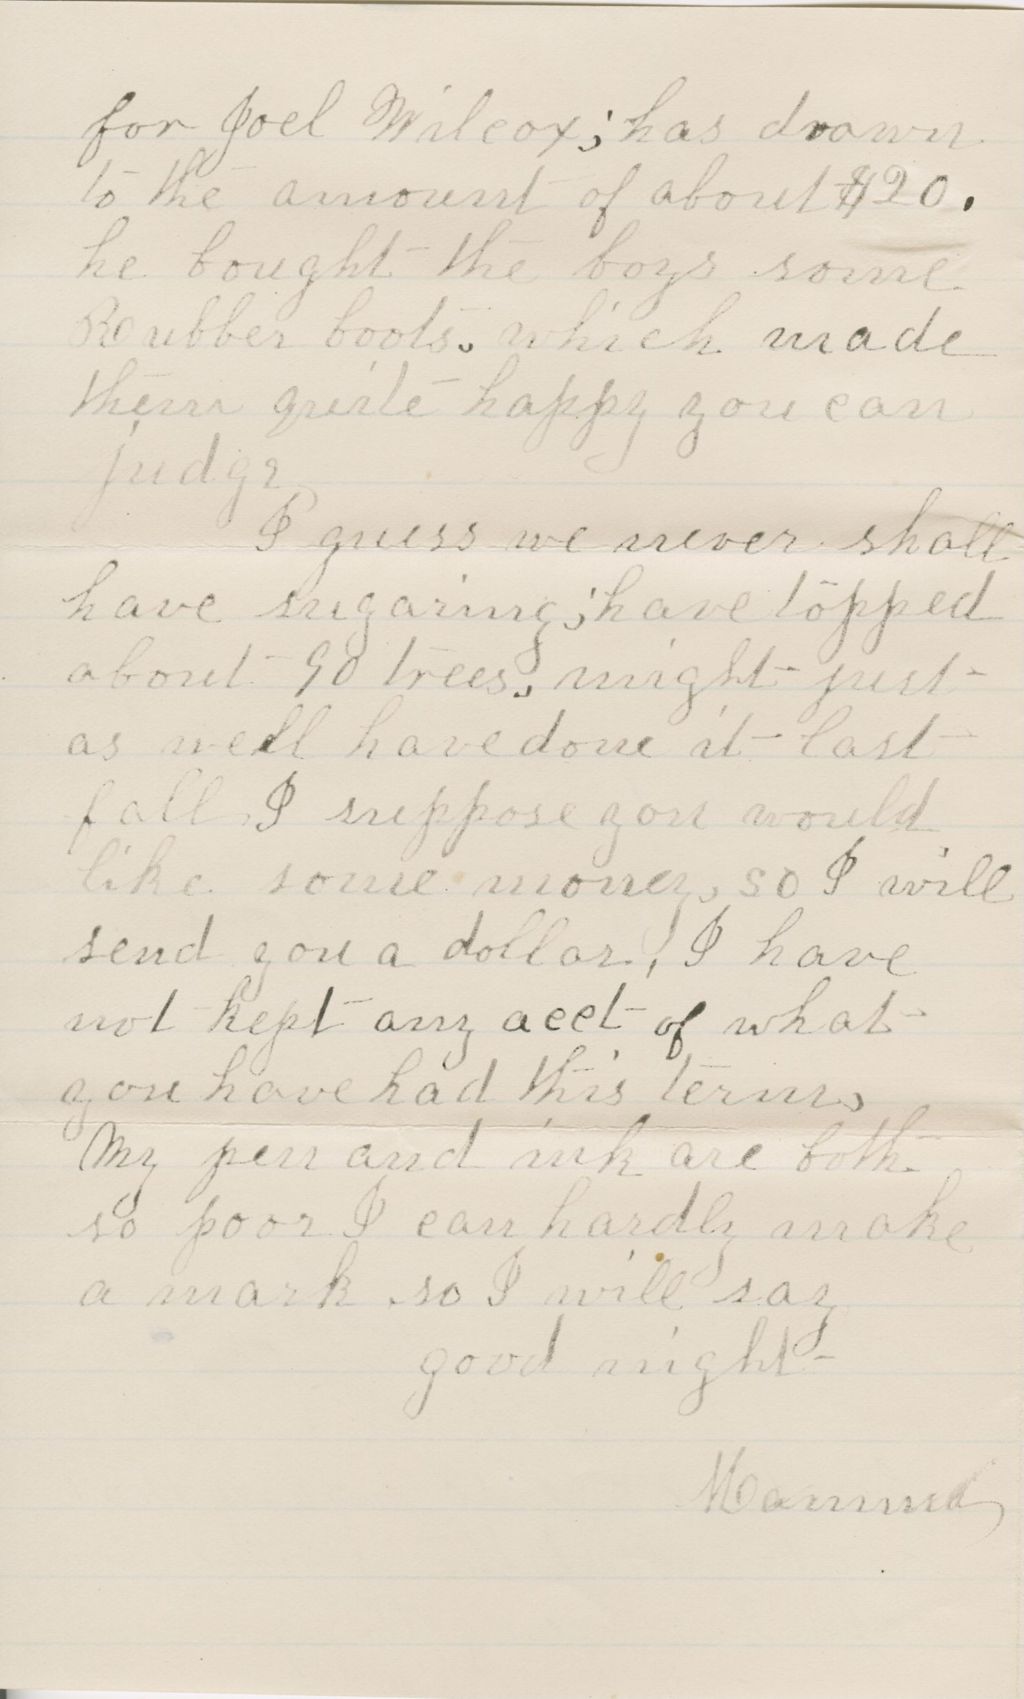 for Joel Wilcox; has drawn
to the amount of about $20.
he bought the boys some
Rubber boots. which made
them quite happy you can
judge
I guess we never shall
have sugaring; have topped
about 90 trees, might just
as well have done it last
fall. I suppose you would
like some money, so I will
send you a dollar, I have
not kept any acct of what
you have had this term,
My pen and ink are both
so poor I can hardly make
a mark so I will say
good night
Mamma